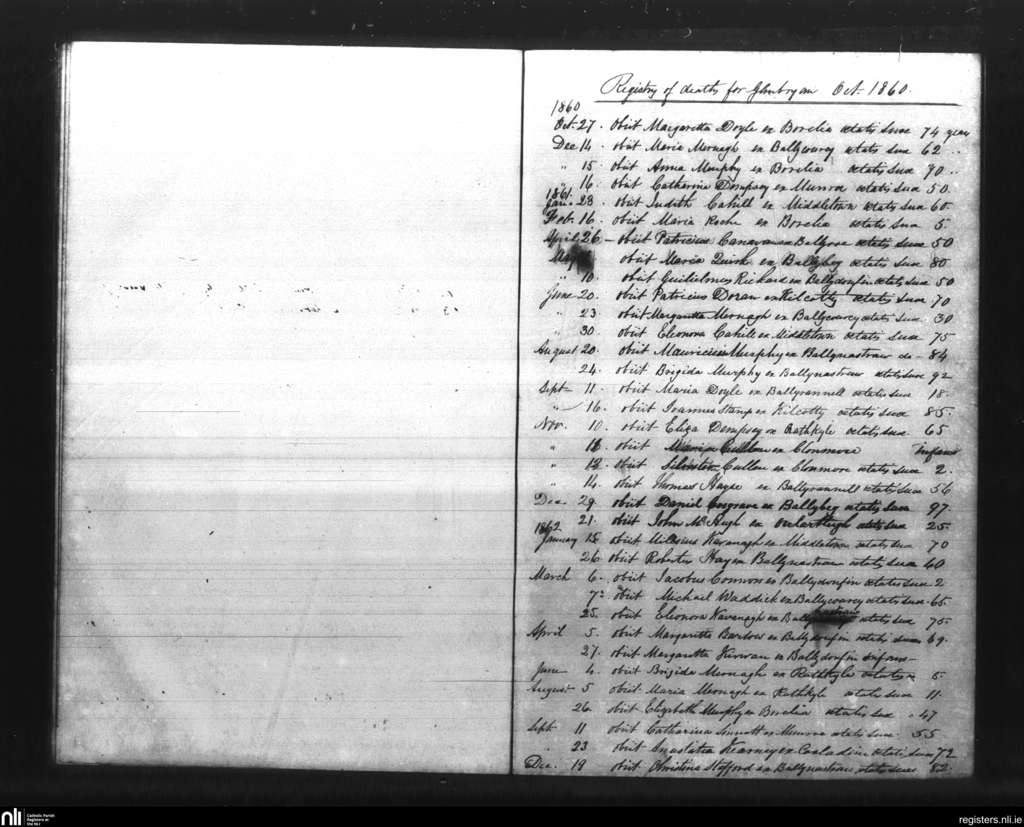 Registry of deaths for Glenbryan Oct. 1860.
1860
Oct. 27. Obiit Margaretta Doyle ex Borelia aetatis suae 74 years
Dec 14. obiit Maria Mernagh ex Ballycourcy aetatis suae 62 ..
" 15 obiit Anna Murphy ex Borelia aetatis suae 70 ..
" 16. obiit Catharina Dempsey ex Munroe aetatis sua 50.
1861.
Jan. 23. obiit Judith Cahill ex Middletown aetatis sua 60.
Feb. 16. obiit Maria Roche ex Borelia aetatis sua 5.
April 26 – obiit Patricius Canavan ex aetatis suae 50
May obiit Maria Quirk ex Ballybeg aetatis suae 80
" 10. obiit Guilielmus Richard ex Ballydonfin aetatis sua 50
June 20. obiit Patricius Doran ex Kilcotty aetatis sua 70
" 23 obiit Margaretta Mernagh ex Ballycourcy aetatis sua. 30
" 30. obiit Eleonora Cahill ex Middletown aetatis sua 75
August 20. obiit Mauricius Murphy ex Ballynastraw do- 84
24. obiit Brigida Murphy ex Ballynastraw aetatis suae 92
Sept- 11. obiit Maria Doyle ex Ballyrannell aetatis suae 18.
" 16. obiit Joannes Stamp ex Kilcotty aetatis sua 85.
Nov. 10. obiit Eliza Dempsey ex Rathkyle aetatis sua 65
" 12. obiit Maria Cullen ex Clonmore Infans
" 12. obiit Silvester Cullen ex Clonmore aetatis sua 2.
" 14. obiit Thomas Hayse ex Ballyrannell aetatis suae 56
Dec 29. obiit Daniel Cosgrave ex Ballybeg aetatis suae 97.
21. obiit John McHugh ex Oulartleigh aetatis sua 25.
1862
January 15. obiit Milesius Kavanagh ex Middletown aetatis sua 70
26 obiit Robertus Hay ex Ballynastraw aetatis sua 40
March 6. obiit Jacobus Connors ex Ballydonfin aetatis sua 2
7. obiit Michael Waddick ex Ballycourcy aetatis sua 65.
25. obiit Eleonora Kavanagh ex Ballynastraw aetatis sua 75.
April 5. obiit Margaretta Barlow ex Ballydonfin aetatis suae 69.
27. obiit Margaretta Kirwan ex Ballydonfin infans –
June 4. obiit Brigida Mernagh ex Rathkyle aetatis 5.
August 5 obiit Maria Mernagh ex Rathkyle aetatis suae 11.
26. obiit Elizabeth Murphy ex Borelia aetatis sua 47
Sept 11 obiit Catharina Sinnott ex Munroe aetatis suae. 55
" 23 obiit Anastatia Kearney ex Cooladine aetatis suae 72
Dec. 19 obiit Christina Stafford ex Ballynastraw aetatis suae 82
nli Catholic Parish Registers at the NLI
registers.nli.ie